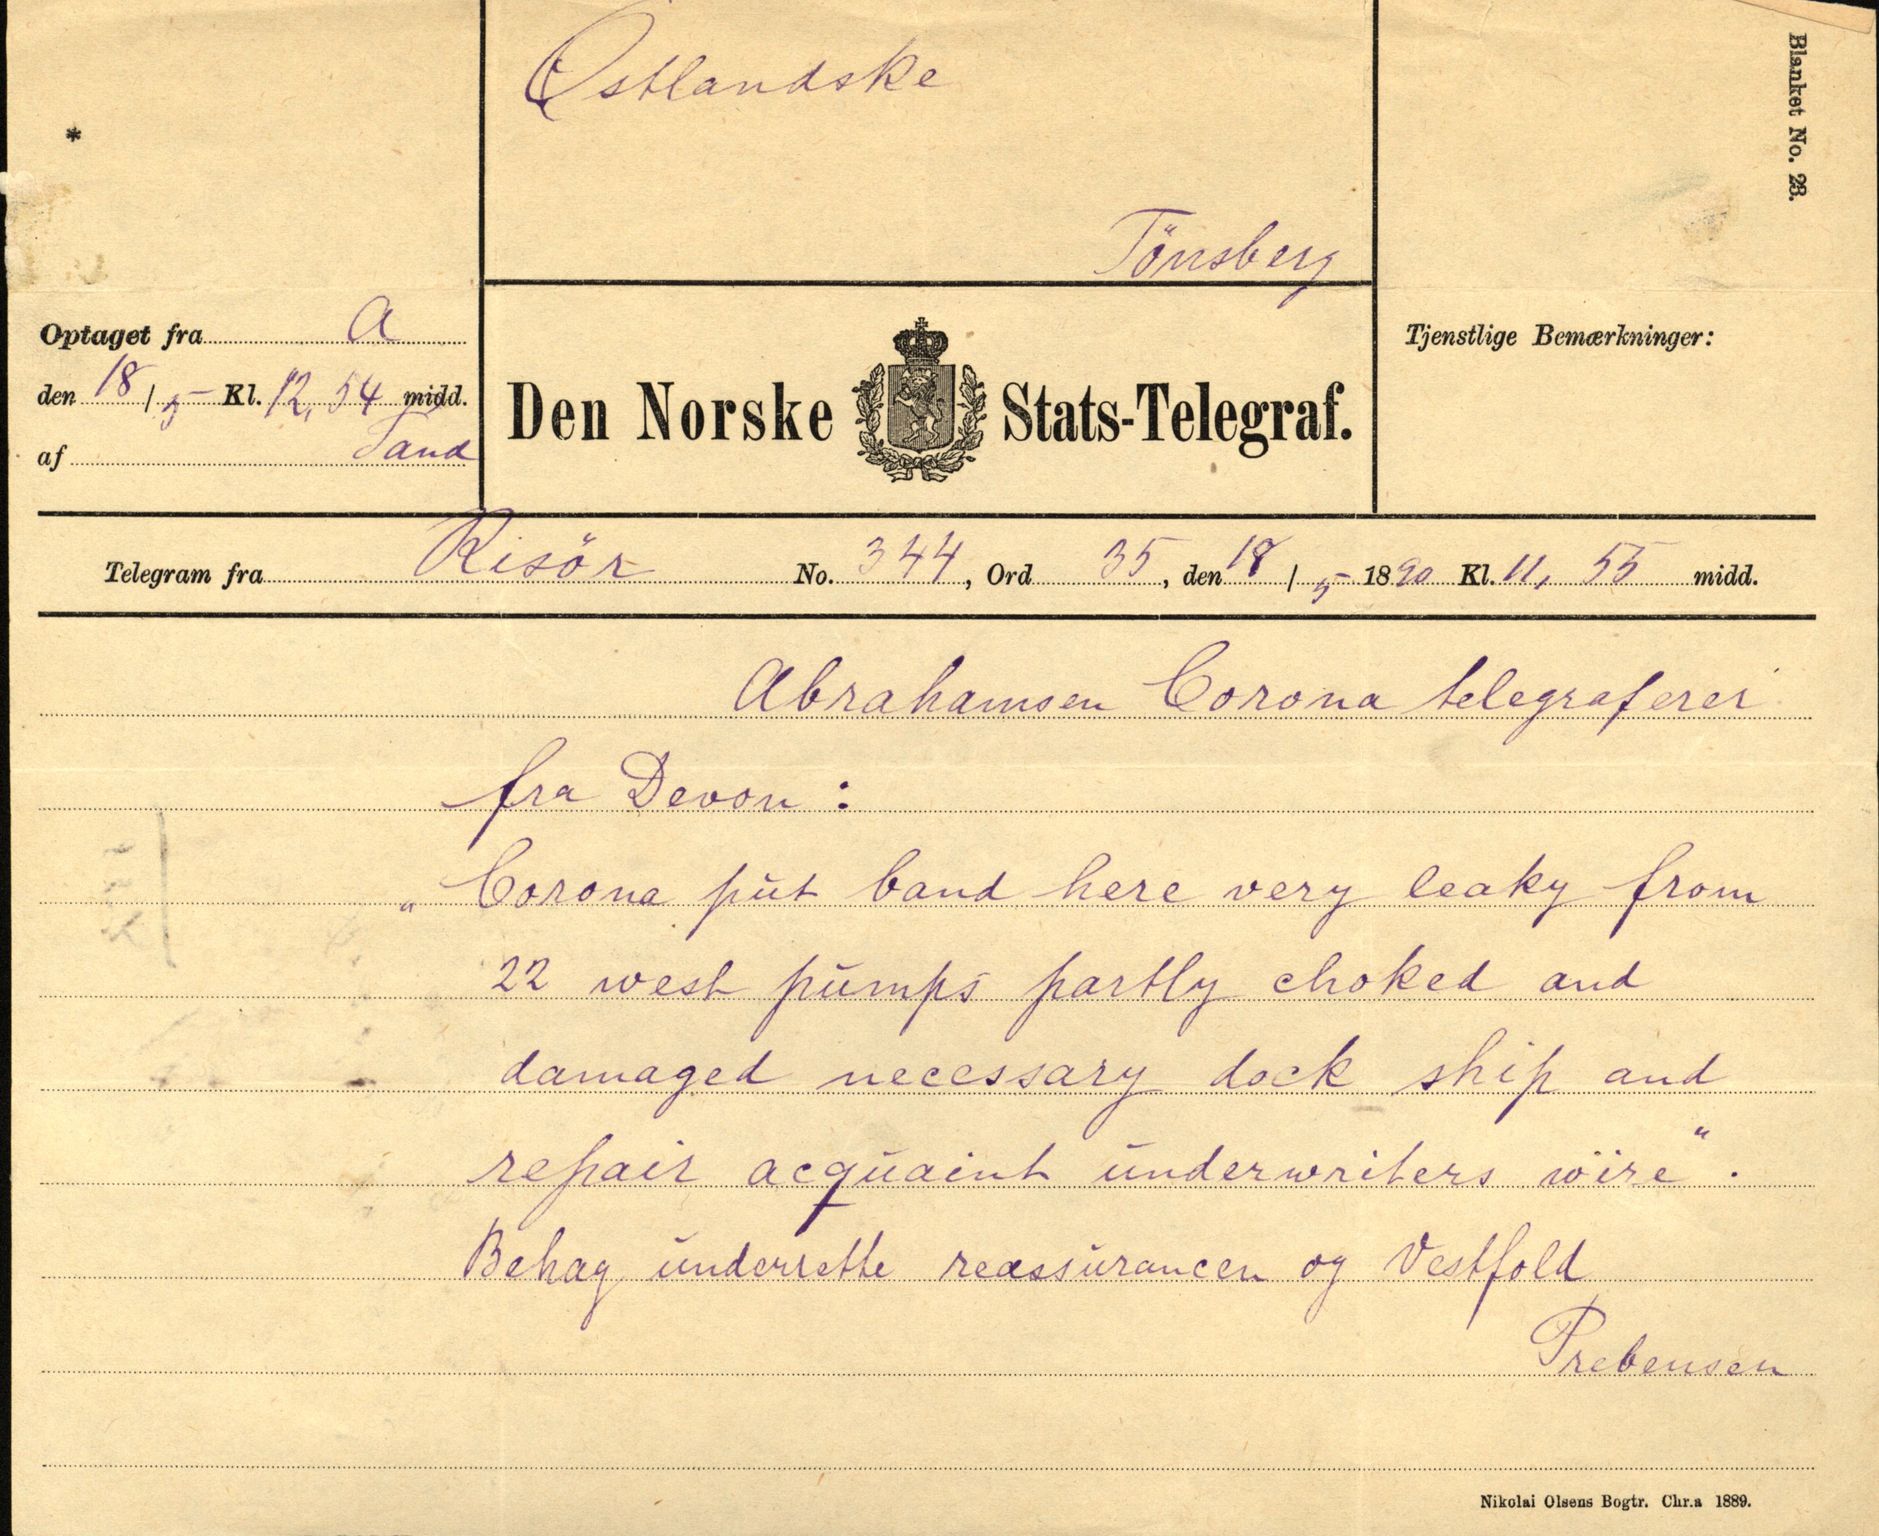 Østlandske
Blanket No. 23.
*
Tönsberg
Optaget fra A
den 18/5 Kl. 12,54 midd.
af Sand
Den Norske Stats-Telegraf.
Tjenstlige Bemærkninger:
Telegram fra Risör No. 344, Ord 35, den 18/5 1890 Kl. 11,55 midd.
Abrahamsen Corona telegraferer
fra Devon:
"Corona put band here very leaky from
22 west pumps partly choked and
damaged necessary dock ship and
repair acquaint underwriters wire".
Behag underrette reassurancen og Vestfold
Prebensen
Nikolai Olsens Bogtr. Chr.a 1889.